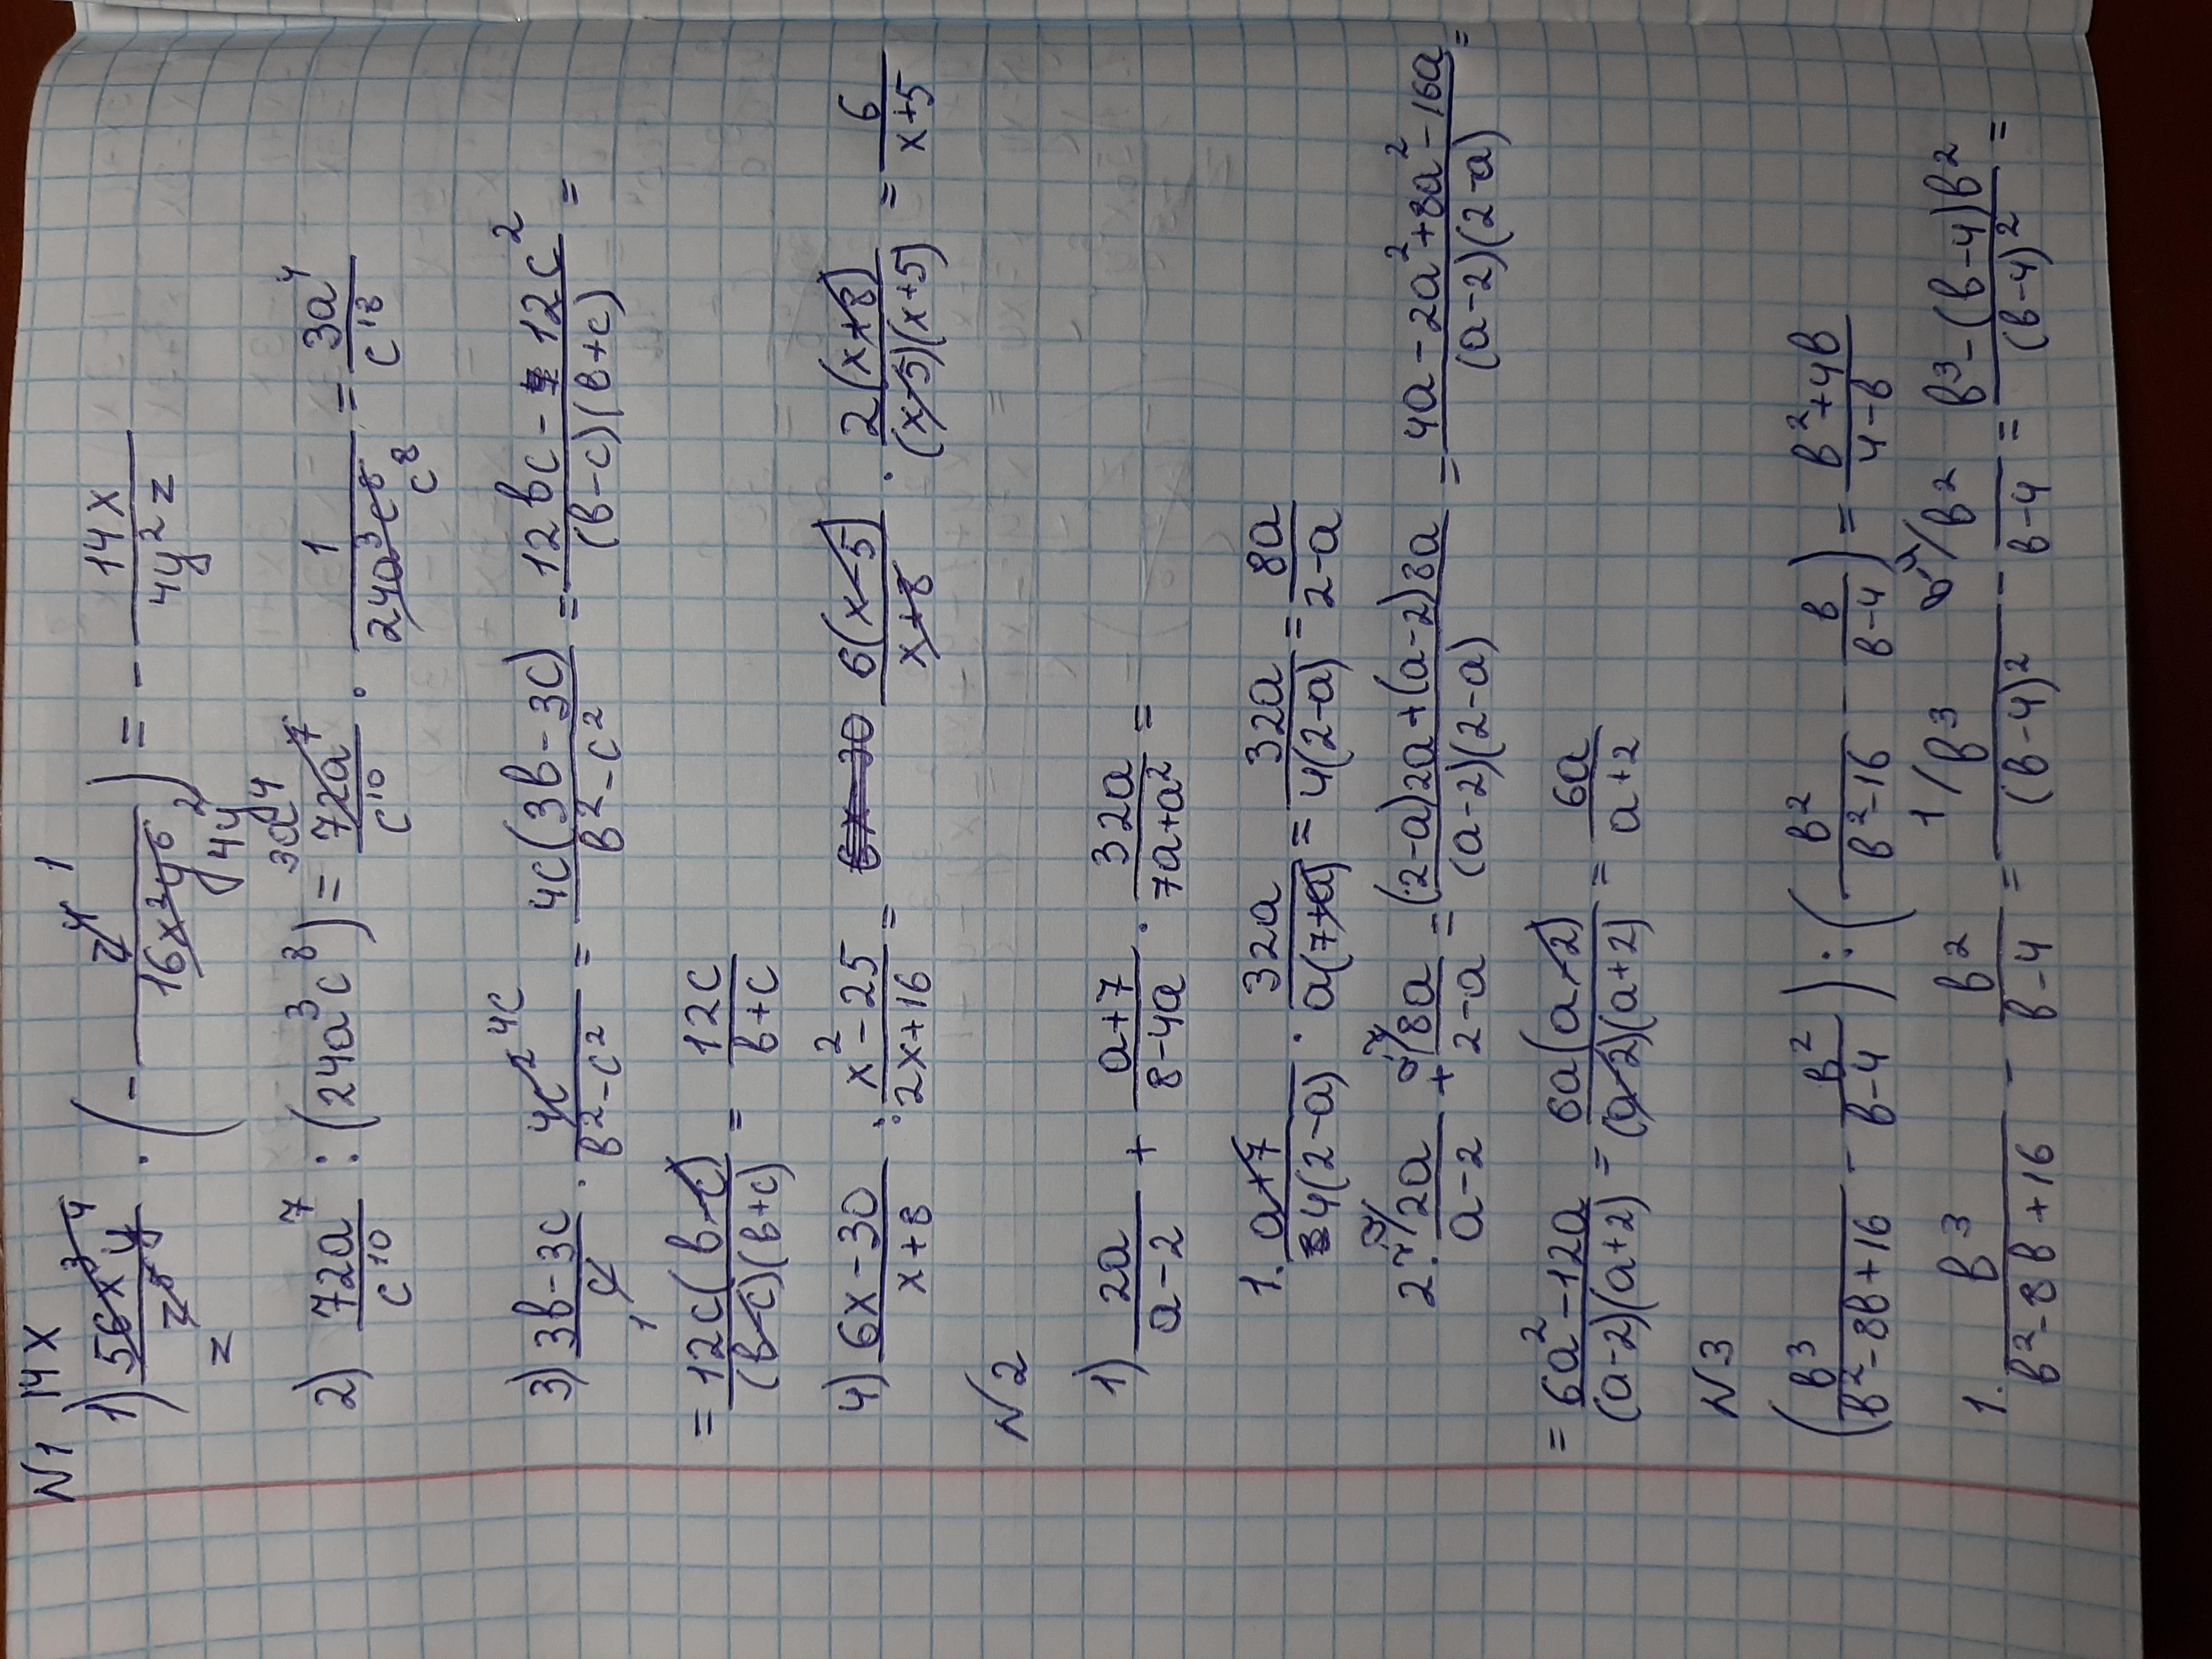 N1
1) 56x³y⁴/z⁵ · (- z⁴/16x²y⁶) = - 14x/4y²z
2) 72a⁷/c¹⁰ : (24a³c⁸) = 72a⁷/c¹⁰ · 1/24a³c⁸ = 3a⁴/c¹⁸
3) 3в-3c/c · 4c²/в²-c² = 4c(3в-3c)/в²-c² = 12вc-12c²/(в-c)(в+c) =
= 12c(в-c)/(в-c)(в+c) = 12c/в+c
4) 6x-30/x+8 : x²-25/2x+16 = 6(x-5)/x+8 · 2(x+8)/(x-5)(x+5) = 6/x+5
N2
1) 2a/a-2 + a+7/8-4a · 32a/7a+a² =
1. a+7/4(2-a) · 32a/a(7+a) = 32a/4(2-a) = 8a/2-a
2. 2-a/2a/a-2 + a-2/8a/2-a = (2-a)2a+(a-2)8a/(a-2)(2-a) = 4a-2a²+8a²-16a/(a-2)(2-a) =
= 6a²-12a/(a-2)(a+2) = 6a(a-2)/(a-2)(a+2) = 6a/a+2
N3
(в³/в²-8в+16 - в²/в-4) : (в²/в²-16 - в/в-4) = в²+4в/4-в
1. в³/в²-8в+16 - в²/в-4 = 1/в³/(в-4)² - в-4/в²/в-4 = в³-(в-4)в²/(в-4)² =